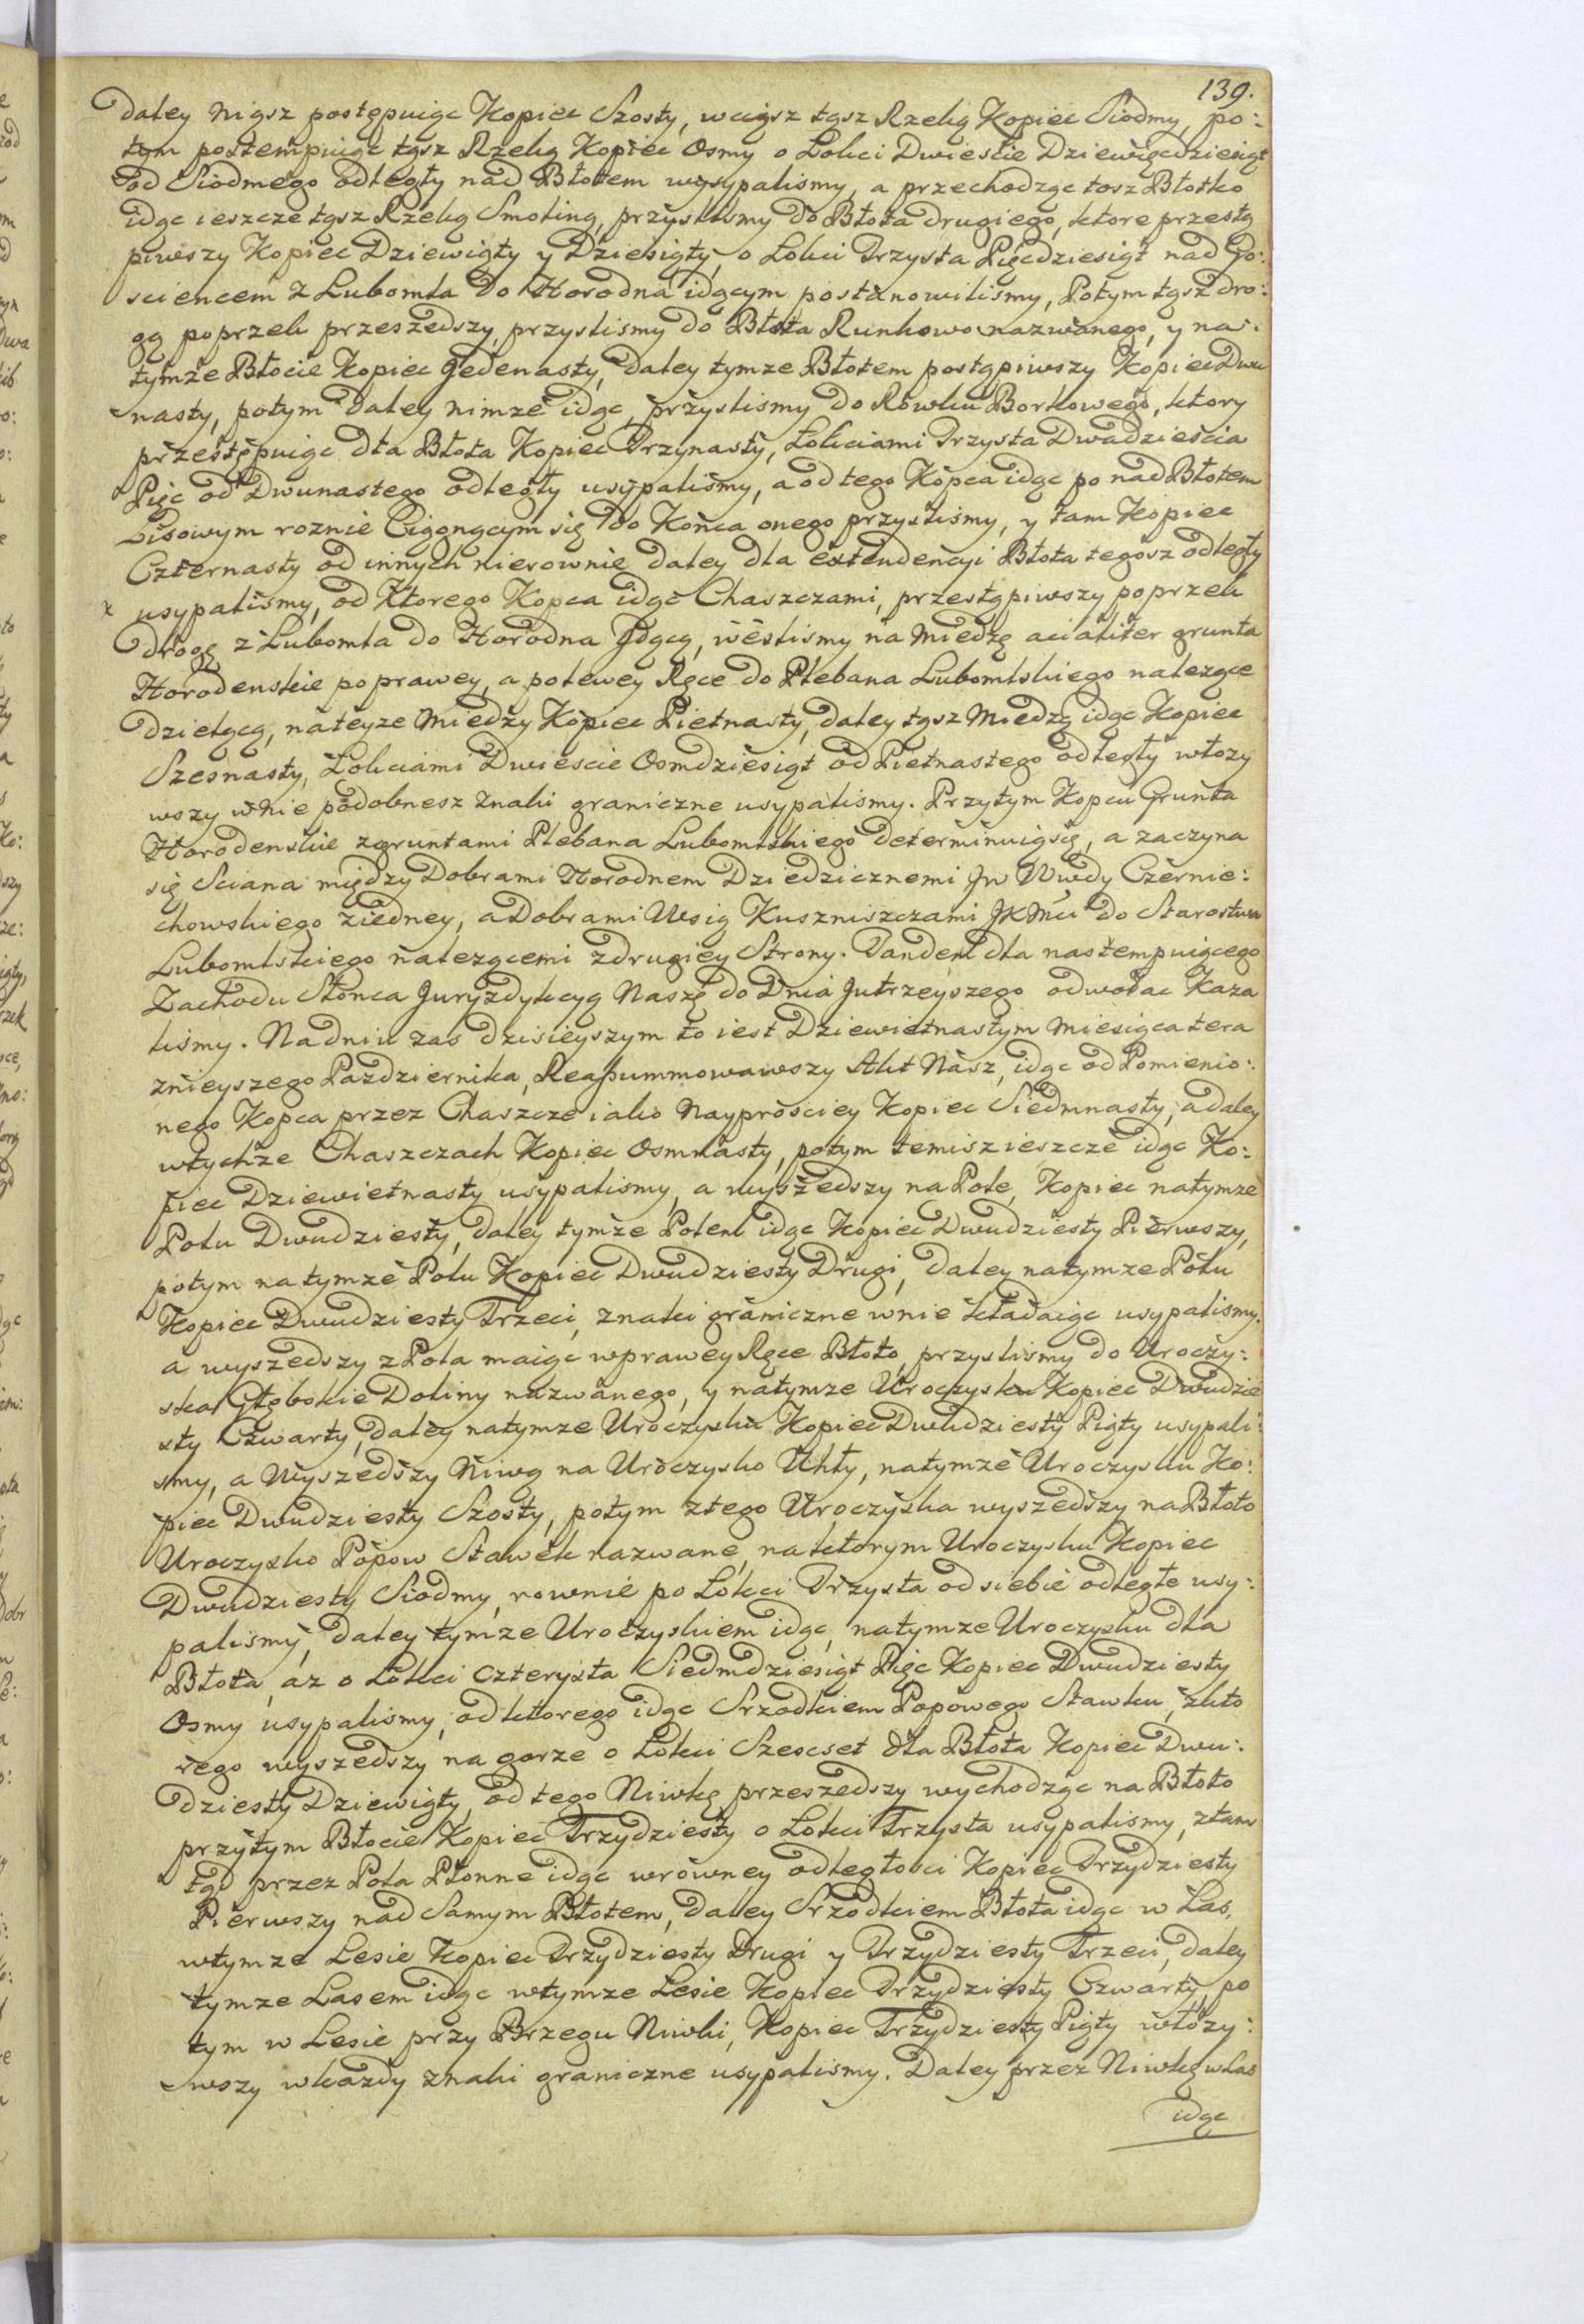 139.
daley niąsz postępuiąc Kopiec Szosty, wciąsz tąsz Rzeką Kopiec Siodmy, po:
tym postempuiąc tąsz Rzeką Kopiec Osmy o Łokci Dwieście Dziewięcdziesiąt
od Siodmego odległy nad Błotem wysypalismy, a przechodząc tosz Błotko
idąc ieszcze tąsz Rzeką Smoling, przyslismy do Błota drugiego, ktore przestą
piwszy Kopiec Dziewiąty y Dziesiąty o Łokci Trzysta Pięcdziesiąt nad Go:
sciencem z Lubomla do Horodna idącym postanowilismy, Potym tąsz dro:
gą poprzek przeszedszy, przyslismy do Błota Runkowo nazwanego, y na
tymże Błocie Kopiec Jedenasty, daley tymze Błotem postąpiwszy Kopiec Dwu
nasty, potym daley nimze idąc, przyslismy do Rowku Borkowego, ktory
przestępuiąc dla Błota Kopiec Trzynasty, Łokciami Trzysta Dwadzieścia
Pięc od Dwunastego odległy usypalismy, a od tego Kopca idąc po nad Błotem
Lisowym roznie Ciągnącym się do Końca onego przyslismy, y tam Kopiec
Czternasty od innych nierownie daley dla extendencyi Błota tegosz odległy
x usypalismy, od Ktorego Kopca idąc Chaszczami, przestąpiwszy poprzek
drogę z Lubomla do Horodna Jdącą, weslismy na Miedzę acialiter grunta
Horodenskie po prawey, a po lewey Ręce do Plebana Lubomlskiego nalezące
dzielącą, na teyze Miedzy Kopiec Pietnasty, daley tąsz Miedzą idąc Kopiec
Szesnasty, Łokciami Dwieście Osmdziesiąt od Pietnastego odległy włozy
wszy w Nie podobnesz Znaki graniczne usypalismy. Przytym Kopcu Grunta
Horodenskie zgruntami Plebana Lubomlskiego determinuiąsię, a zaczyna
się Sciana między Dobrami Horodnem Dziedzicznemi Jw Wwdy Czernie:
chowskiego ziedney, a Dobrami Wsią Kuszniszczami JKMci do Starostwa
Lubomlskiego nalezącemi zdrugiey Strony. Tandem dla nastempuiącego
Zachodu Słonca Juryzdykcyą Naszę do Dnia Jutrzeyszego odwołac Kaza
lismy. Na dniu zas dzisieyszym to iest Dziewietnastym Miesiąca tera
znieyszego Pazdziernika, Reassummowawszy Akt Nasz, idąc od Pomienio:
nego Kopca przez Chaszcze iako Nayprosciey Kopiec Siedmnasty, a daley
wtychze Chaszczach Kopiec Osmnasty, potym temisz ieszcze idąc Ko:
piec Dziewietnasty usypalismy, a wyszedszy na Pole, Kopiec natymze
Polu Dwudziesty, daley tymze Polem idąc Kopiec Dwudziesty Pierwszy,
potym na tymze Polu Kopiec Dwudziesty Drugi, daley natymze Polu
Kopiec Dwudziesty Trzeci, znaki graniczne wnie kładaiąc usypalismy.
a wyszedszy z Pola maiąc wprawey Ręce Błoto, przyslismy do Uroczy:
ska Głębokie Doliny nazwanego, y natymze Uroczysku Kopiec Dwudzie
sty Czwarty, daley natymze Uroczysku Kopiec Dwudziesty Piąty usypali:
smy, a Wyszedszy Niwą na Uroczysko Uhły, natymze Uroczysku Ko:
piec Dwudziesty Szosty, potym ztego Uroczyska wyszedszy na Błoto
Uroczysko Popow Stawek nazwane, naktorym Uroczysku Kopiec
Dwudziesty Siodmy, rownie po Łokci Trzysta od siebie odległe usy:
palismy, daley tymze Uroczyskiem idąc, natymze Uroczysku dla
Błota, az o Łokci Czterysta Siedmdziesiąt Pięc Kopiec Dwudziesty
Osmy usypalismy, od ktorego idąc Srzodkiem Popowego Stawku, zkto
rego wyszedszy na gorze o Łokci Szescset dla Błota Kopiec Dwu:
dziesty Dziewiąty, od tego Niwkę przeszedszy wychodząc na Błoto
przytym Błocie Kopiec Trzydziesty o Łokci Trzysta usypalismy, ztam
tąd przez Pola Płonne idąc wrowney odległosci Kopiec Trzydziesty
Pierwszy nad Samym Błotem, daley Srzodkiem Błota idąc w Las,
wtymze Lesie Kopiec Trzydziesty Drugi y Trzydziesty Trzeci, daley
tymze Lasem idąc wtymze Lesie Kopiec Trzydziesty Czwarty, po
tym w Lesie przy Brzegu Niwki, Kopiec Trzydziesty Piąty włozy:
wszy wkazdy znaki graniczne usypalismy. Daley przez Niwkę wLas
idąc